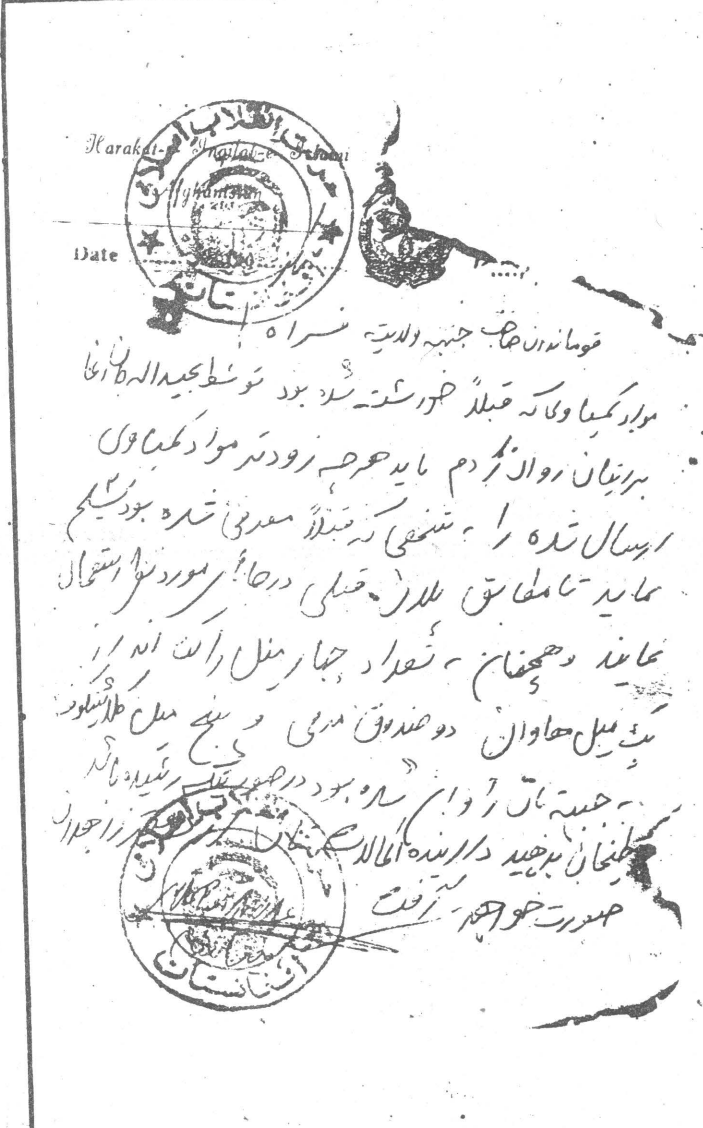 حرکت انقلاب اسلامی
Harakat-e Inqilab-e Islami
Afghanistan
Date
افغانستان
قوماندان صاحب جبهه ولایت فراه
مواد کیمیاوی که قبلاً خواسته شده بود توسط عبیدالله جان آغا
برایتان روان کردم باید هر چه زودتر مواد کیمیاوی
ارسال شده را به شخصی که قبلاً معرفی شده بود تسلیم
نماید تا مطابق پلان قبلی در جاهای مورد نظر استعمال
نمایند و همچنان به تعداد چهار میل راکت انداز
یک میل هاوان دو صندوق مرمی و پنج میل کلاشینکوف
به جبهه تان روان شده بود در صورتیکه رسیده باشد
اطمینان بدهید در آینده
صورت خواهد گرفت
افغانستان